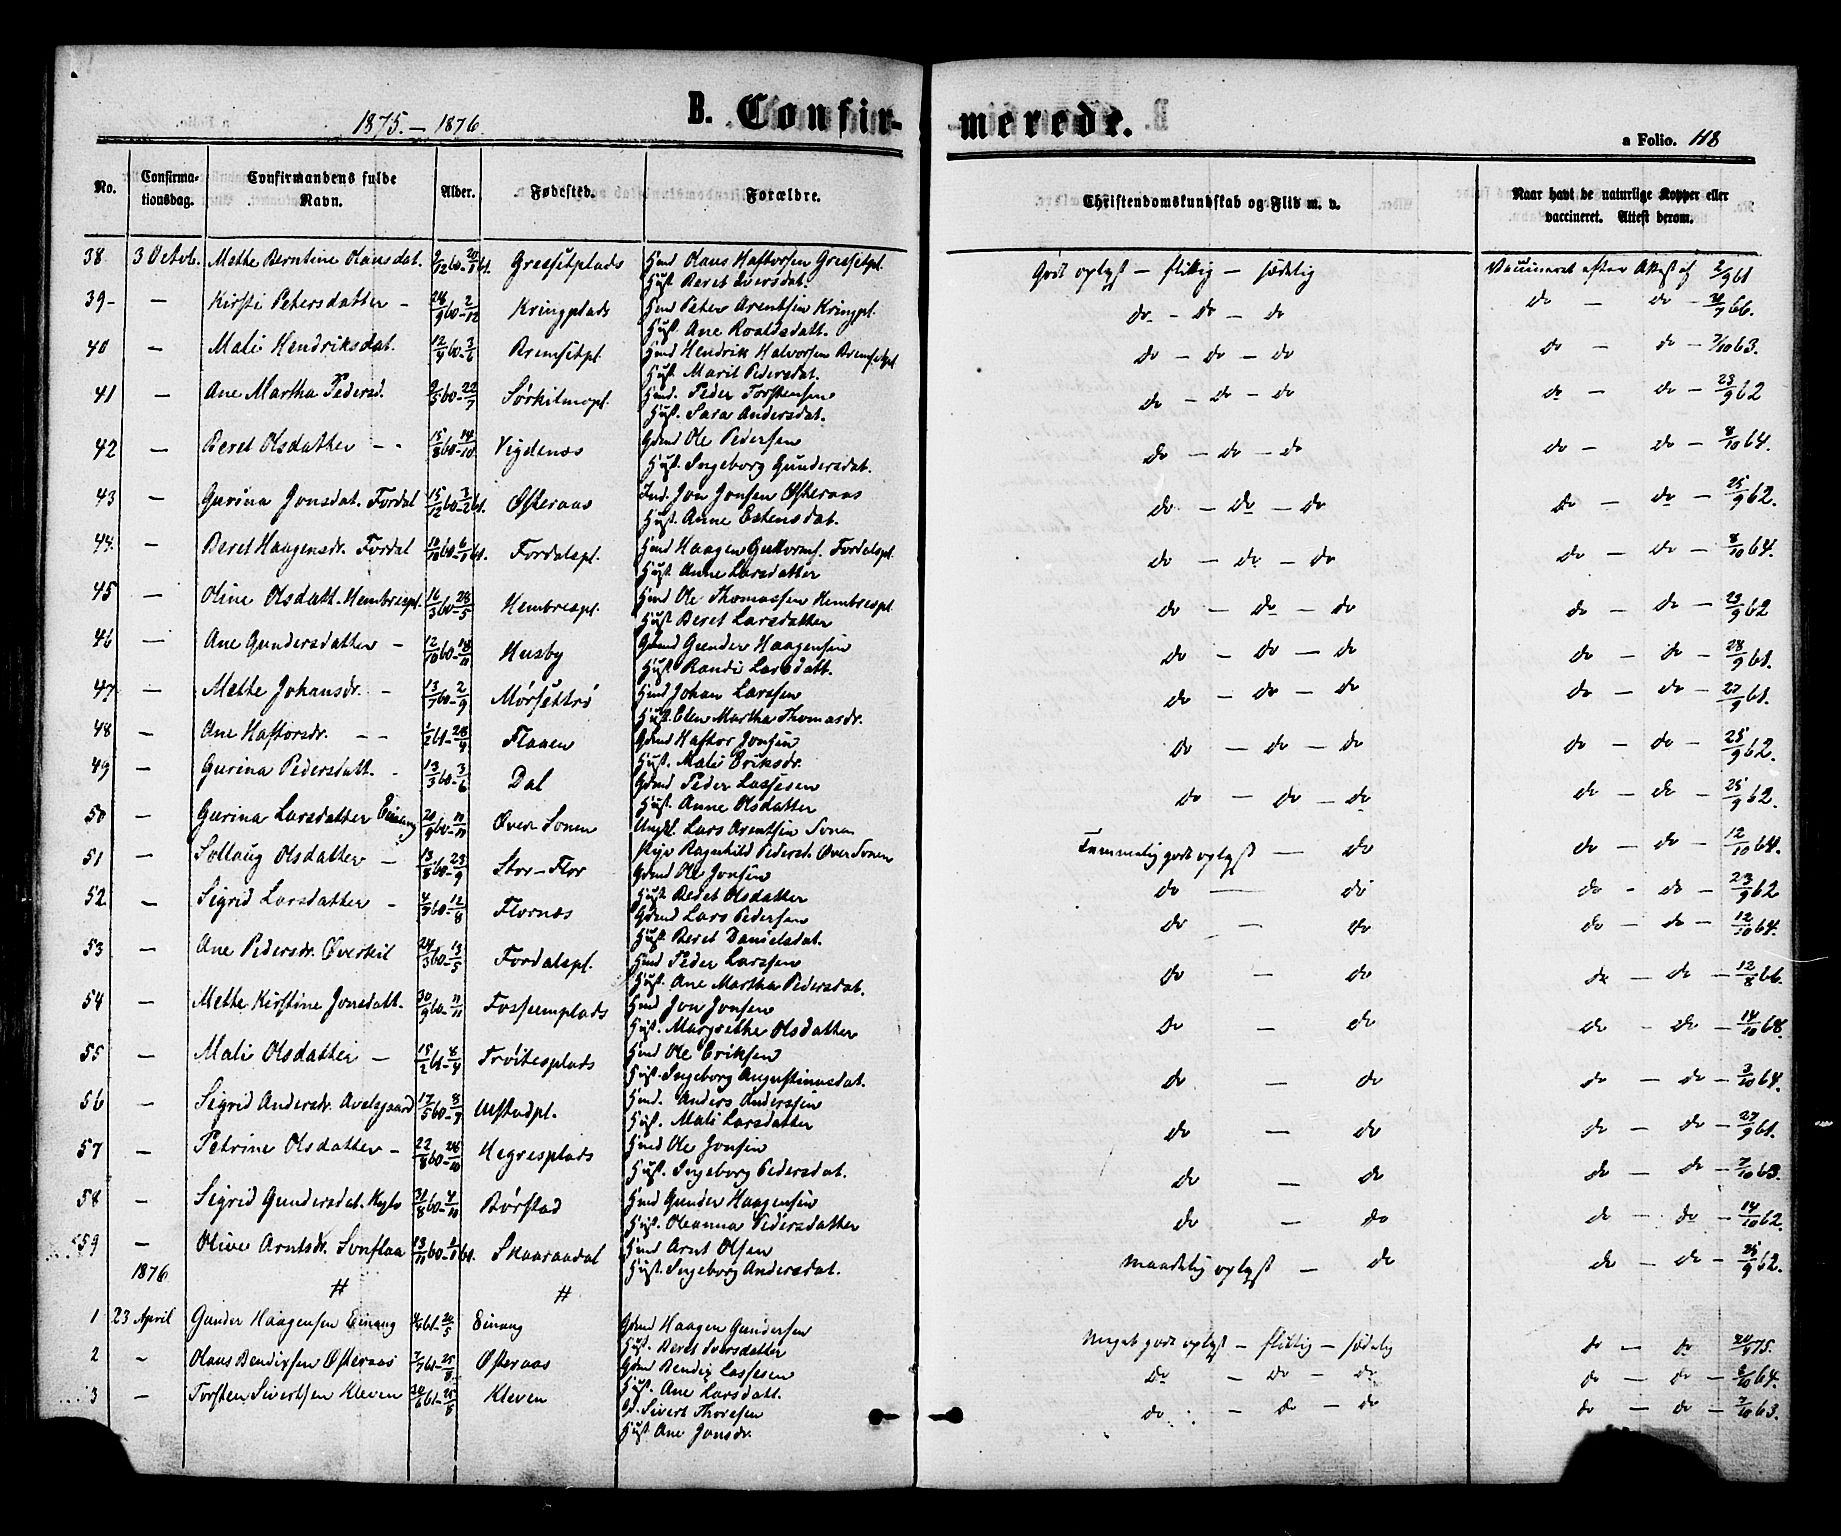 1875. – 1876.
B. Confirmerede.
a Folio. 118
No. Confirmationsdag. Confirmandens fulde Navn. Alder. Fødested. Forældre. Christendomskundskab og Flid m. v. Naar havt de naturlige Kopper eller vaccineret. Attest herom.
38 3 Octob. Methe Berntine Olausdat. Gressetplads Hmd Olaus Haftorsen Gressetpl. Godt oplyst – flittig – sædelig Vaccineret efter Attest af 2/9 61
Hust Beret Iversdat.
39 – Kirsti Petersdatter – 28/9 60 – 2/12 Kringplads Hmd Peter Arentsen Kringpl. do – do – do do – do –
Hust. Ane Roaldsdatt.
40 – Mali Hendriksdat. Bremsetpl. Hmd Hendrik Halvorsen Bremsetpl do – do – do do – do – 7/10 63.
Hust Marit Pedersdat.
41 – Ane Martha Pedersd. Sørkilmopl. Hmd. Peder Torstensen do – do – do do – do – 23/9 62
Hust. Sara Andersdat.
42 – Beret Olsdatter – – 15/8 60 – 14/10 Vigdenes Gdmd Ole Pedersen do – do – do do – do – 8/10 64.
Hust. Ingeborg Gundersdat.
43 – Gurina Jonsdat. Fordal 15/12 60 – 3/2 61. Østeraas Ind. Jon Jonsen Østeraas do – do – do do – do – 25/9 62.
Hust. Anne Estensdat.
44. – Beret Haagensdr. Fordal Fordalspl. Hmd Haagen Guttorms. Fordalspl. do – do – do do – do – 8/10 64.
Hust Anne Larsdatter
45 – Oline Olsdatt. Hembrespl. 16/3 60 – 28/5 Hembrespl. Hmd Ole Thomassen Hembrespl do – do – do do – do – 23/9 62
Hust Beret Larsdatter
46 – Ane Gundersdatter – 12/10 60 – 18/11 Husby Gdmd Gunder Haagensen do – do – do do – do – 28/9 61.
Hust Randi Larsdatt.
47 – Mette Johansdr. – 13/7 60 – 2/9 Mørsettrø Hmd Johan Larssen do – do – do do – do – 27/9 61.
Hust. Elen Martha Thomasdr.
48 – Ane Haftorsdr. – – Flaaen Gdmd Haftor Jonsen do – do – do do – do – 25/9 62.
Hust. Mali Eriksdr.
49 – Gurina Pedersdatt. – 13/3 60 – 3/6 Dal Gdmd Peder Lassesen do – do – do do – do – 25/9 62.
Hust. Anne Olsdatter
50 – Gurina Larsdatter Einang Over Sonen Ungkl. Lars Arentsen Sonen Temmelig godt oplyst – do do – do – 12/10 64.
Pige Ragnhild Pedersd. Øver Sonen
51 – Sollaug Olsdatter – 13/8 60 – 23/9 Stor-Flor Gdmd Ole Jonsen do – do do – do – 23/9 62
Hust Beret Olsdatter
52 – Sigrid Larsdatter – Flornes Gdmd Lars Pedersen do – do do – do – 12/10 64.
Hust Beret Danielsdat.
53 – Ane Pedersdr. Øverkil 24/3 60 – 13/5 Fordalspl. Hmd Peder Larssen do – do do – do – 12/8 66.
Hust. Ane Martha Pedersdat.
54 – Methe Kirstine Jonsdatt. 30/9 60 – 11/11 Fossumplads Hmd Jon Jonsen do – do do – do – 14/10 68.
Hust. Margrethe Olsdatter
55 – Mali Olsdatter – 15/2 61 – 8/4 Trøitesplads Hmd Ole Eriksen do – do do – do – 3/10 64.
Hust. Ingeborg Augustinusdat.
56 – Sigrid Andersdr. Avelsgaard 17/5 60 – 8/7 Ulstadpl. Hmd. Anders Andersen do – do do – do – 27/9 61.
Hust. Mali Larsdatter
57 – Petrine Olsdatter – 22/8 60 – 28/10 Hegresplads Hmd Ole Jonsen do – do do – do – 7/10 63.
Hust. Ingeborg Pedersdat.
58 – Sigrid Gundersdat. 31/8 60 – 4/11 Børstad Hmd Gunder Haagensen do – do do – do – 14/10 62.
Hust. Oleanna Pedersdatter
59 – Olive Arntsdr. Sonflaa Skaaraadal Hmd Arnt Olsen Maadelig oplyst – do do – do – 25/9 62.
Hust. Ingeborg Andersdat.
1876 # #
1 23 April Gunder Haagensen Einang Einang Gdmd Haagen Gundersen Meget godt oplyst – flittig – sædelig do – do
Hust. Beret Iversdatter
2 – Olaus Bendixsen Østeraas Østeraas Gdmd Bendix Lassesen do – do – do do – do – 6/10 64.
Hust. Ane Larsdatt.
3 – Torsten Sivertsen Kleven Kleven Gd. Sivert Thoresen do – do – do do – do – 7/10 63.
Hust Ane Jonsdr.